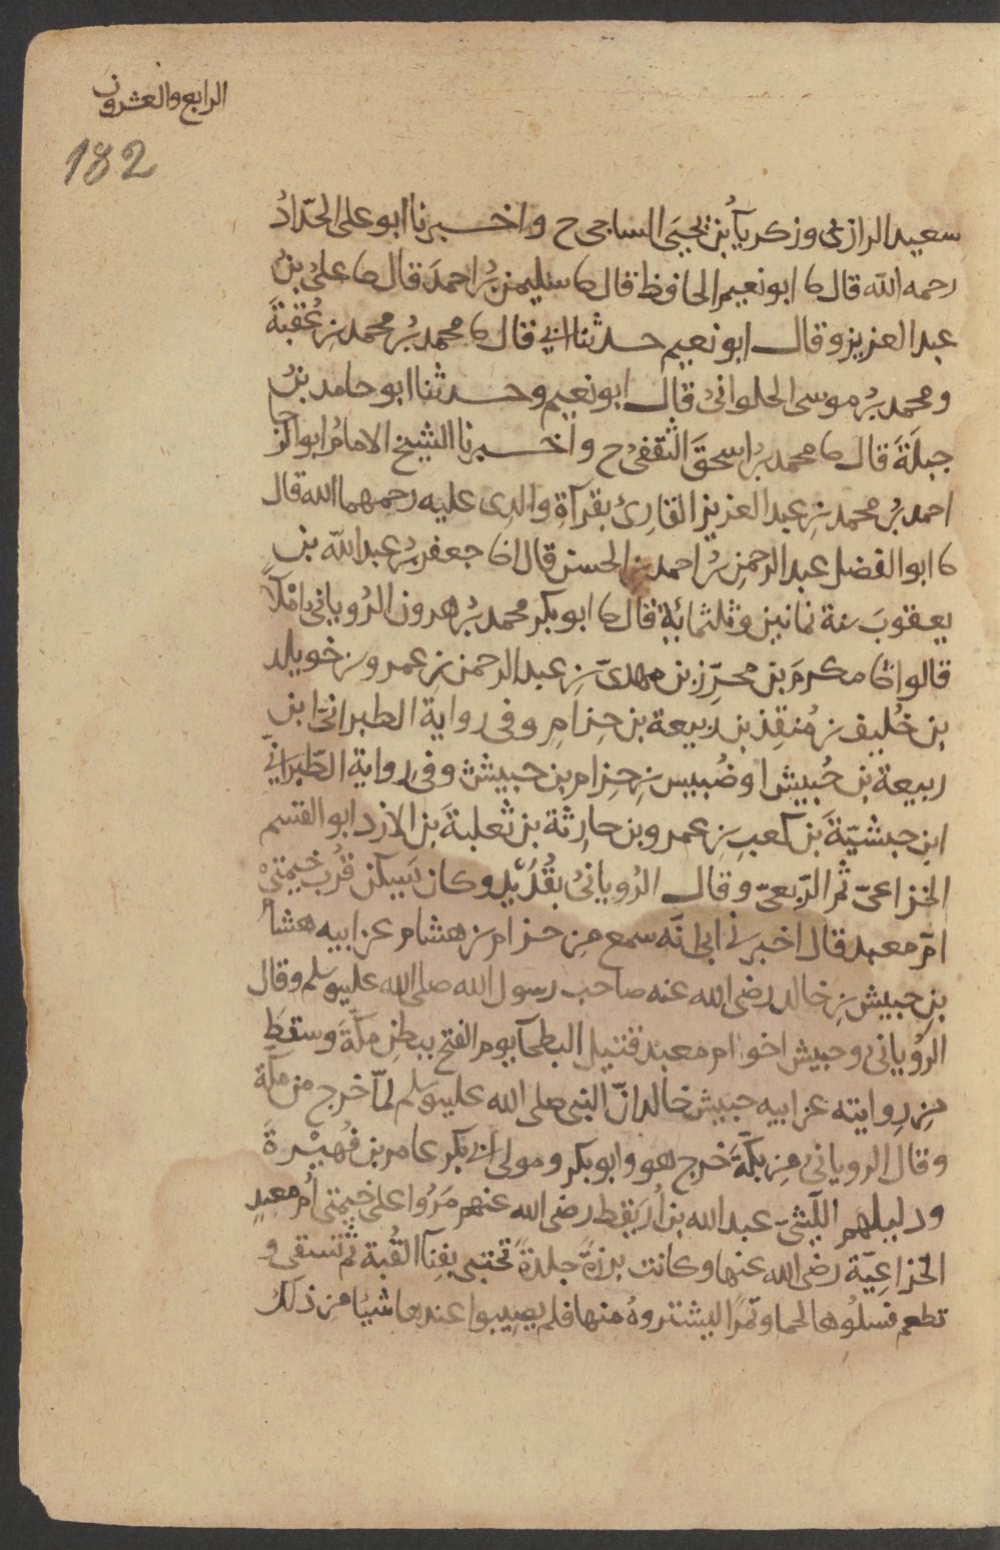 الرابع والعشرون
182
سعيد الرازى وزكريآ بن يحيى الساجى ح واخــبرنا ابو على الحدّادُ
رحمه الله قال ثا ابو نعيم الحافظ قال ثا سليمن بنُ احمدَ قال ثا علىُ بنُ
عبد العزيز وقال ابو نعيم حدثنا ابى قال ثا محمد بنُ محمد بنِ عُقبَةَ
ومحمد بنُ موسى الحلوانىُ قال ابو نعيم وحدثنا ابو حامد بنُ
جبلَةَ قال ثا محمد بنُ اسحقَ الثقفىُ ح واخــبرنا الشيخ الامامُ ابو الرجا
احمد بنُ محمد بنِ عبد العزيز القارِئُ بقرآةِ والدى عليه رحمهما الله قال
ثا ابو الفضل عبد الرحمنِ بنُ احمد بن الحسن قال انا جعفر بنُ عبد الله بن
يعقوبَ سنة ثمانين وثلثمائةٍ قال ثا ابو بكر محمد بنُ هرون الرُويانى املآً
قالوا ثنا مكرمَ بن محرِز بن مهدىّ بنِ عبد الرحمن بنِ عمرو بن خويلد
بن خُليف بن مُنقِذ بن ربيعة بن حِزامٍ وفى رواية الطبرانىّ ابن
ربيعة بن حُبيش او ضُبيس بنِ حِزام بن حبيش وفى رواية الطَبَرانىّ
ابن حبشيّةَ بن كعبِ بنِ عمرو بن حارِثة بن ثعلبةَ بن الازد ابو القسم
الخزاعىّ ثم الرّبعىّ وقال الرُويانىُ بقُدَيْدٍ وكان يَسكن قُربَ خيمتىْ
امّ معبد قال اخبرنى ابى انّه سمع مِن حزام بن هشام عن ابيه هشام
بن حبيش بنِ خالد رضى الله عنه صاحب رسول الله صلى الله عليه وسلم وقال
الرُويانى وحبيش اخو ام معبد قتيل البطحآ يوم الفتح ببطنِ مكّةَ وسقطَ
مِن رِوايته عن ابيه حبيش خالد انّ النبى صلى الله عليه وسلم لمّا خرج من مكّة
وقال الرويانى مِن بكّةَ خرج هو وابو بكر ومولى ابى بكر عامر بن فُهيْرةَ
ودليلهم الليثىّ عبد الله بن اُرَيْقِط رضى الله عنهم مَرُوا على خيمتى اُم معبدٍ
الخزاعِيّة رضى الله عنها وكانت برزةً جلدةً تحتبى بفنآ القُبة ثم تسقى و
تطعم فسلُوها لحما وتمرًا ليشتروهُ منها فلم يصيبوا عندها شيئا مِن ذلك